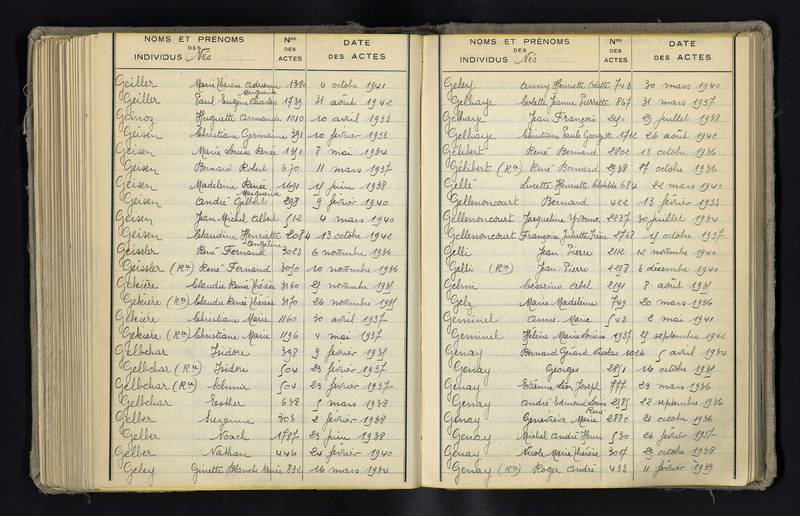 NOMS ET PRÉNOMS DES INDIVIDUS Nés Nos DES ACTES DATE DES ACTES
Geiller Marie Thérèse Adrienne 1380 4 octobre 1941
Geiller Paul Eugène Charles 1739 31 août 1942
Geinoz Huguette Armande 1010 10 avril 1933
Geisen Christiane Germaine 391 10 février 1933
Geisen Marie Louise Renée 1351 8 mai 1934
Geisen Bernard Robert 670 11 mars 1937
Geisen Madeleine Renée 1691 15 juin 1938
Geisen André Gilbert 298 9 février 1940
Geisen Jean Michel Albert 512 4 mars 1940
Geisen Claudine Henriette Angéline 2084 13 octobre 1942
Geissler René Fernand 3023 6 novembre 1936
Geissler (Rce) René Fernand 3050 10 novembre 1936
Gekière Claudie Renée Thérèse 3160 25 novembre 1935
Gekière (Rce) Claudie Renée Thérèse 3170 26 novembre 1935
Gekière Christiane Marie 1160 30 avril 1937
Gekière (Rce) Christiane Marie 1196 4 mai 1937
Gelbchar Isidore 398 9 février 1935
Gelbchar (Rce) Isidore 504 23 février 1937
Gelbchar (Rce) 504 23 février 1937
Gelbchar Esther 638 5 mars 1938
Gelber Suzanne 303 2 février 1938
Gelber Noach 1787 23 juin 1938
Gelber Nathan 446 24 février 1940
Geley Ginette Blanche Renée 832 16 mars 1934
NOMS ET PRÉNOMS DES INDIVIDUS Nés Nos DES ACTES DATE DES ACTES
Geley Anny Henriette Odette 743 30 mars 1940
Gelhaye Colette Jeanne Pierrette 867 31 mars 1937
Gelhaye Jean François 29 juillet 1938
Gelhaye Christiane Paule Georgette 1712 26 août 1942
Gélibert René Bernard 2802 13 octobre 1936
Gélibert (Rce) René Bernard 2938 27 octobre 1936
Gellé Lucette Henriette Clotilde 684 22 mars 1940
Gellenoncourt Bernard 422 13 février 1933
Gellenoncourt Jacqueline Yvonne 2237 30 juillet 1934
Gellenoncourt Françoise Juliette Irène 2768 11 octobre 1937
Gelli Jean Pierre 2112 12 novembre 1940
Gelli (Rce) Jean Pierre 2258 3 décembre 1940
Gelmi Abel 2191 8 août 1931
Gelz Marie Madeleine 749 20 mars 1936
Geminel Anne Marie 543 2 mai 1941
Geminel Hélène Marie Louise 1937 25 septembre 1942
Genay Bernard Gérard Nicolas 1026 5 avril 1934
Genay Georges 2851 16 octobre 1935
Genay Etienne Léon Joseph 777 23 mars 1936
Genay André Edmond Louis René 2585 12 septembre 1936
Genay Geneviève Marie 2880 21 octobre 1936
Genay Michel André Henri 530 26 février 1937
Genay Nicole Marie Thérèse 3017 29 octobre 1938
Genay (Rce) Roger André 433 11 février 1939